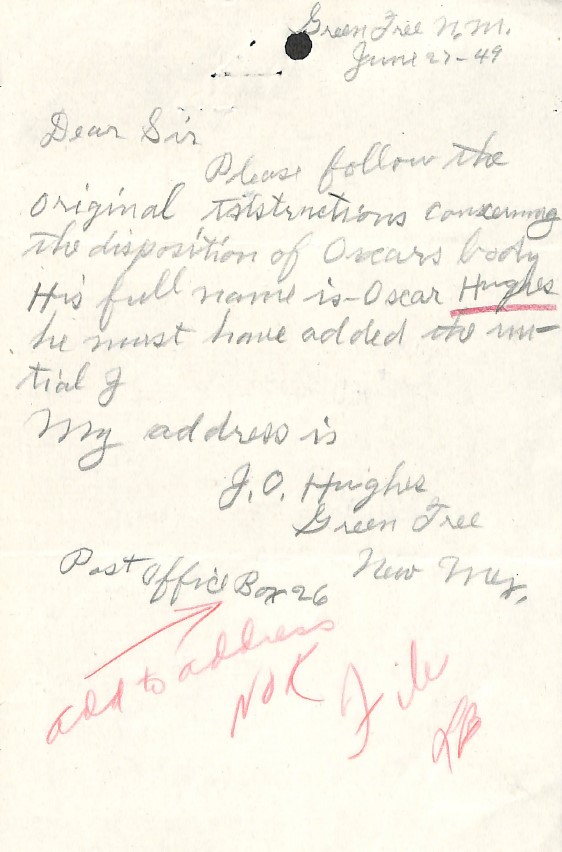 Green Tree N.M.
June 27-49
Dear Sir
Please follow the
original instructions concerning
the disposition of Oscars body
His full name is-Oscar Hughes
he must have added the ini-
tial J
My address is
J.O. Hughes
Green Tree
Post Office Box 26 New Mex.
add to address
NOK File
LB